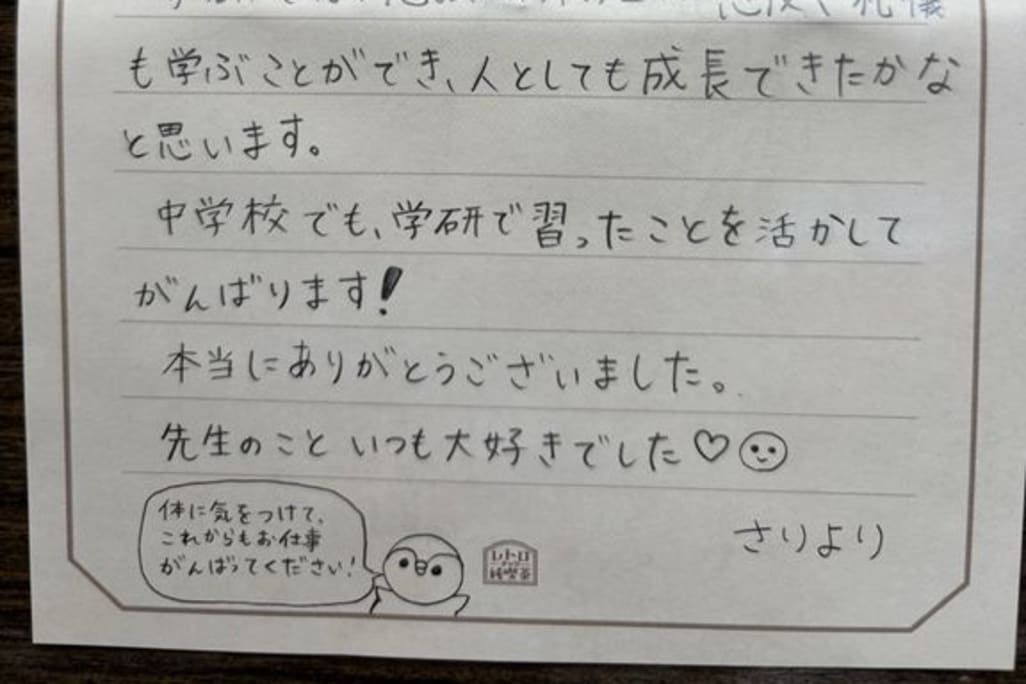 も学ぶことができ、人としても成長できたかな
と思います。
中学校でも、学研で習ったことを活かして
がんばります!
本当にありがとうございました。
先生のこと いつも大好きでした♡
さりより
体に気をつけて、
これからもお仕事
がんばってください!
レトロ
純喫茶